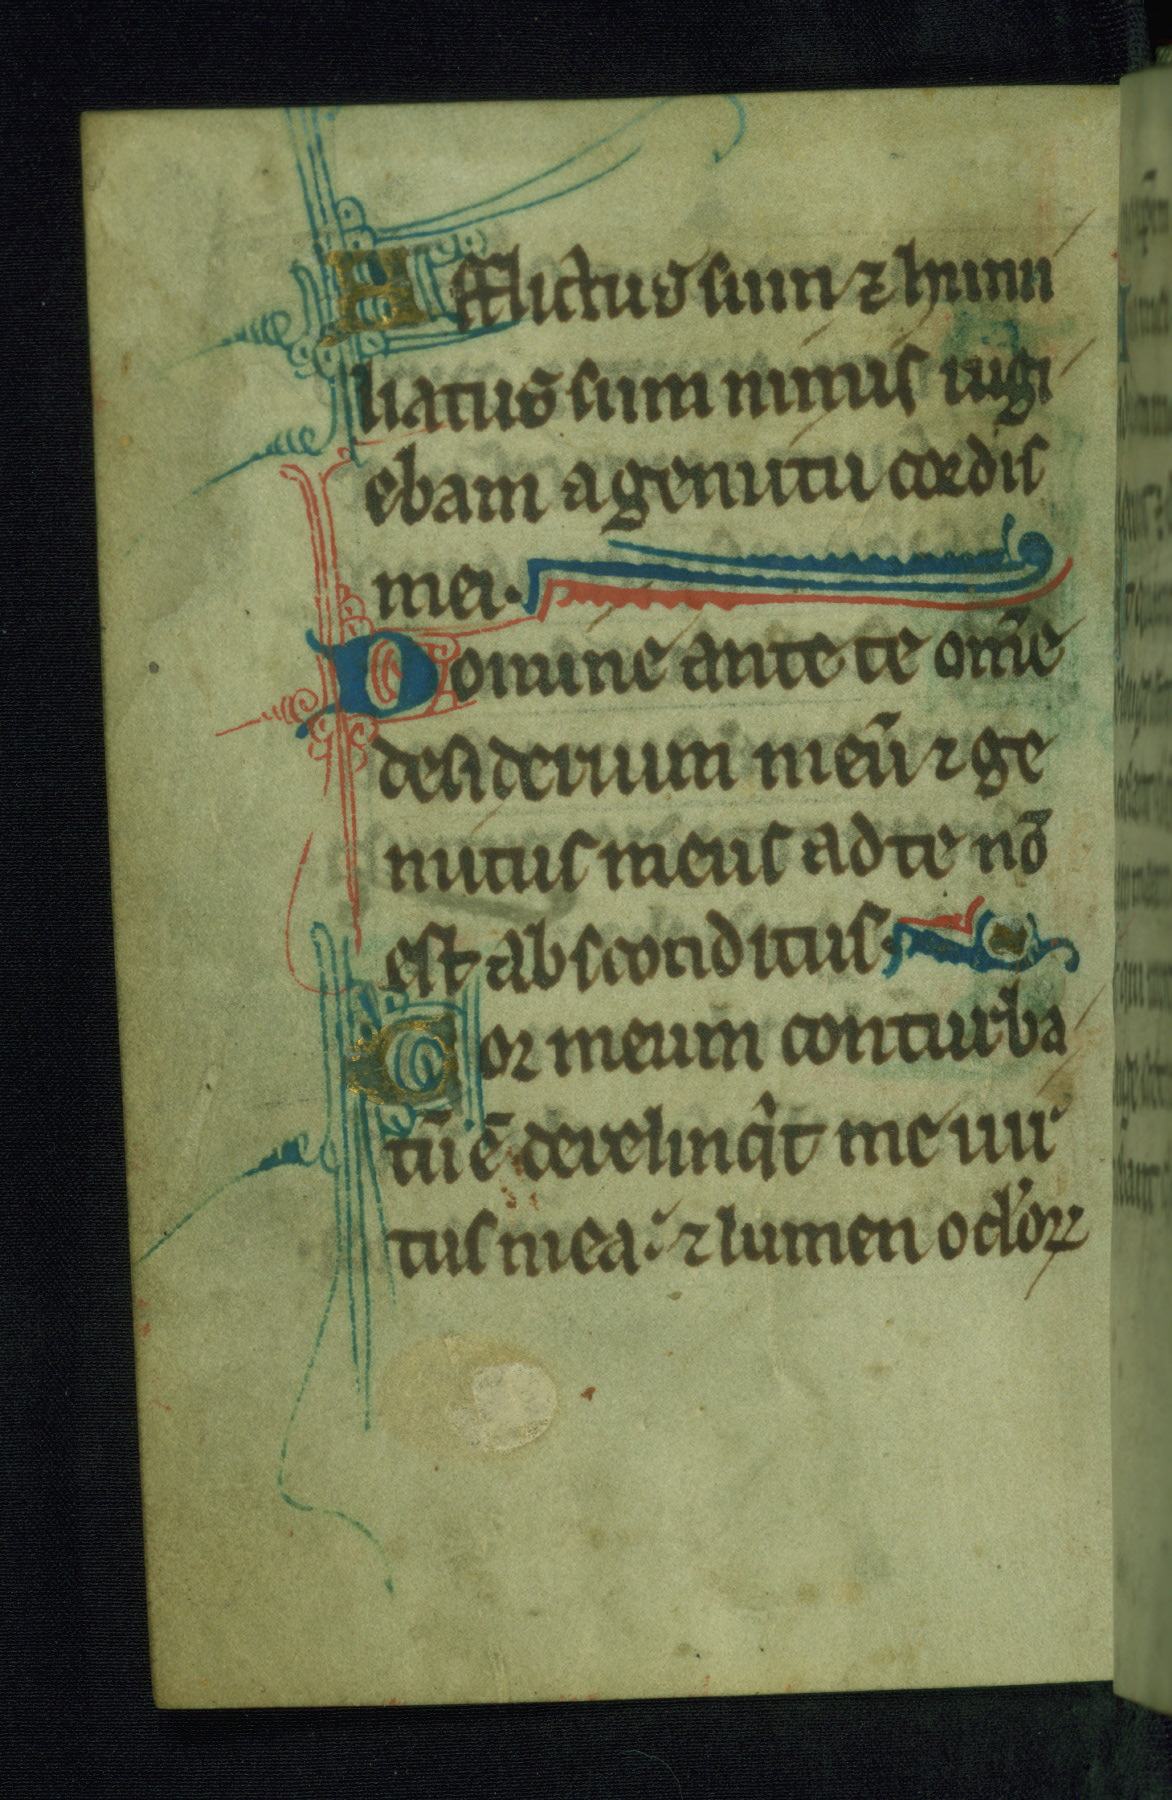 Afflictus sum ⁊ humi
liatus sum nimis rugi
ebam a gemitu cordis
mei.
Domine ante te om̄e
desiderium meū ⁊ ge
mitus meus ad te nō
est absconditus.
Cor meum conturba
tū ē derelinq̇t me uir
tus mea: ⁊ lumen oclōꝝ